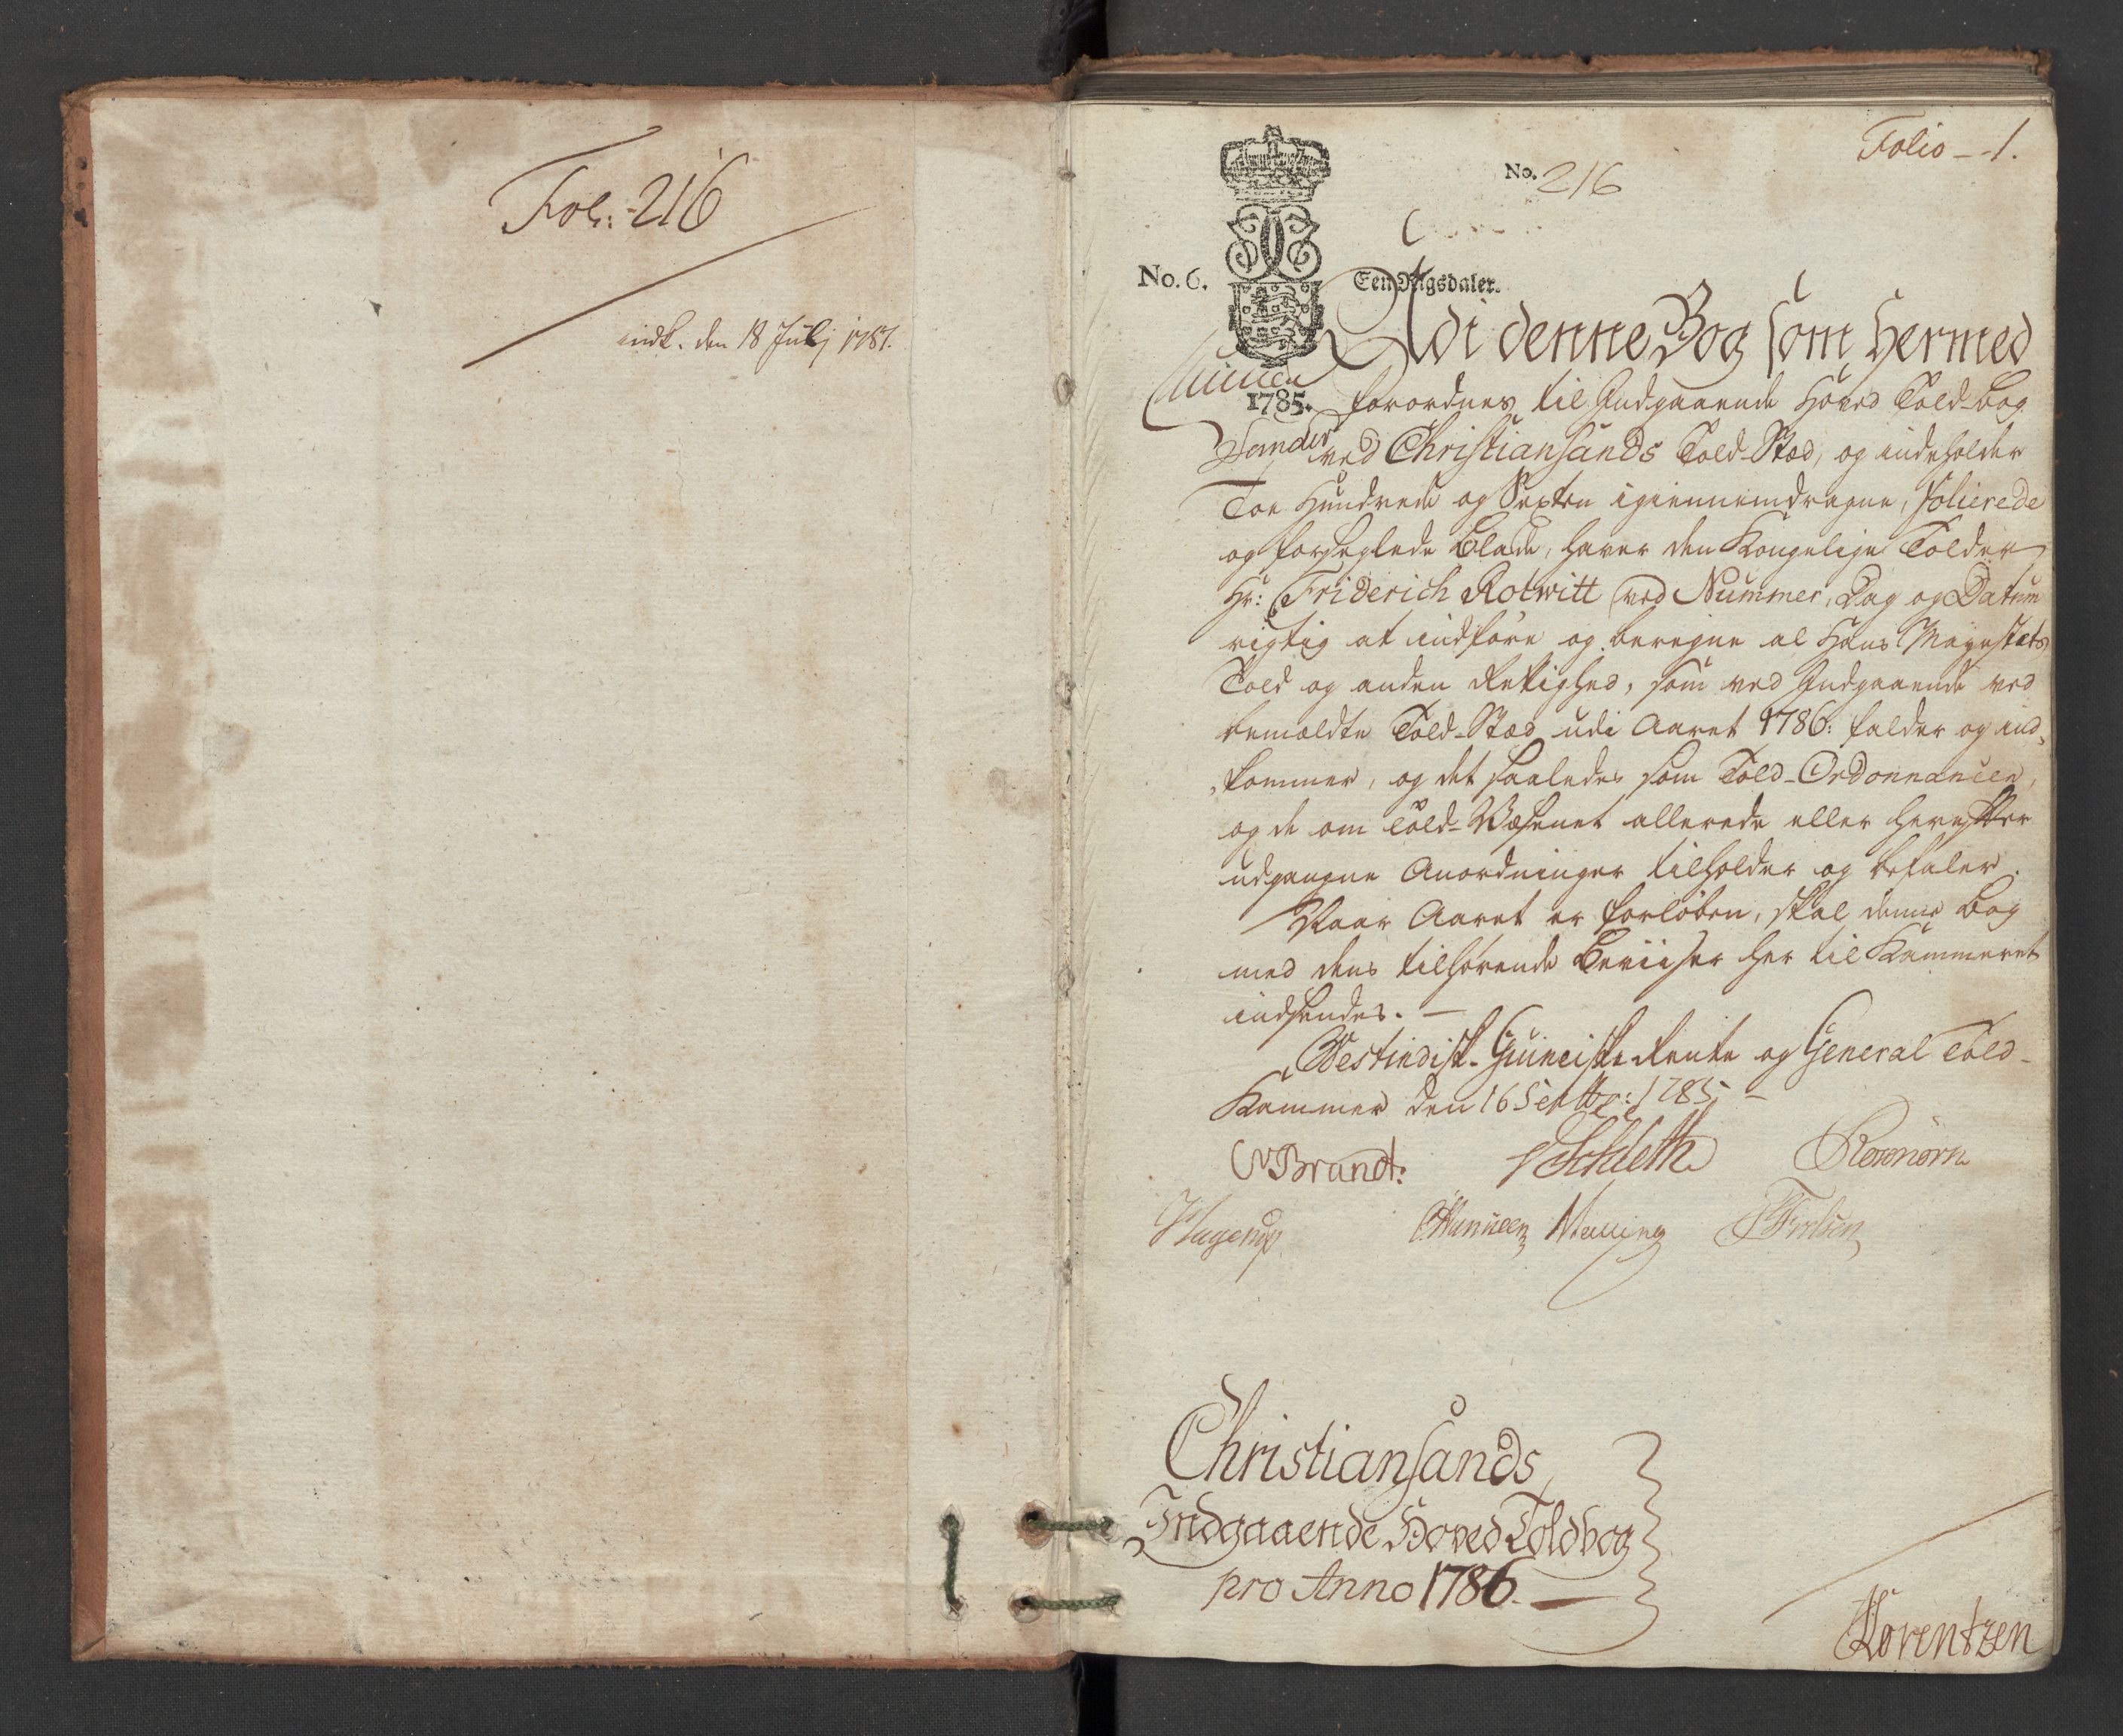 Fol: 216
indk. den 18 Julj 1787.
Folio - 1.
No. 216
No. 6.
Een Rigsdaler.
1785.
Udi denne Bog som hermed
forordnes til Indgaaende Hoved Told-bog
ved Christiansands Told-Stæd, og indeholder
Toe Hundrede og Sexten igiennemdragne, folierede
og forseglede Blade, haver den Kongelige Tolder
Hr: Friderich Rotwitt ved Nummer, Dag og Datum
rigtig at indføre og beregne al Hans Mayestæts
Told og anden Rettighed, som ved Indgaaende ved
bemældte Told-Stæd udi Aaret 1786: falder og ind-
kommer, og det saaledes som Told-Ordonnancen,
og de om Told-Væsenet allerede eller herefter
udgangne Anordninger tilholder og befaler.
Naar Aaret er forløben, skal denne Bog
med dens tilhørende Beviiser her til Kammeret
indsendes. -
Vestindisk-Guineiske Rente og General Told-
Kammer den 16 Septbr: 1785 -
Brandt: Schleth Rosenørn
Hagerup Malling
Christiansands
Indgaaende Hoved Toldbog
pro Anno 1786.
Lorentzen